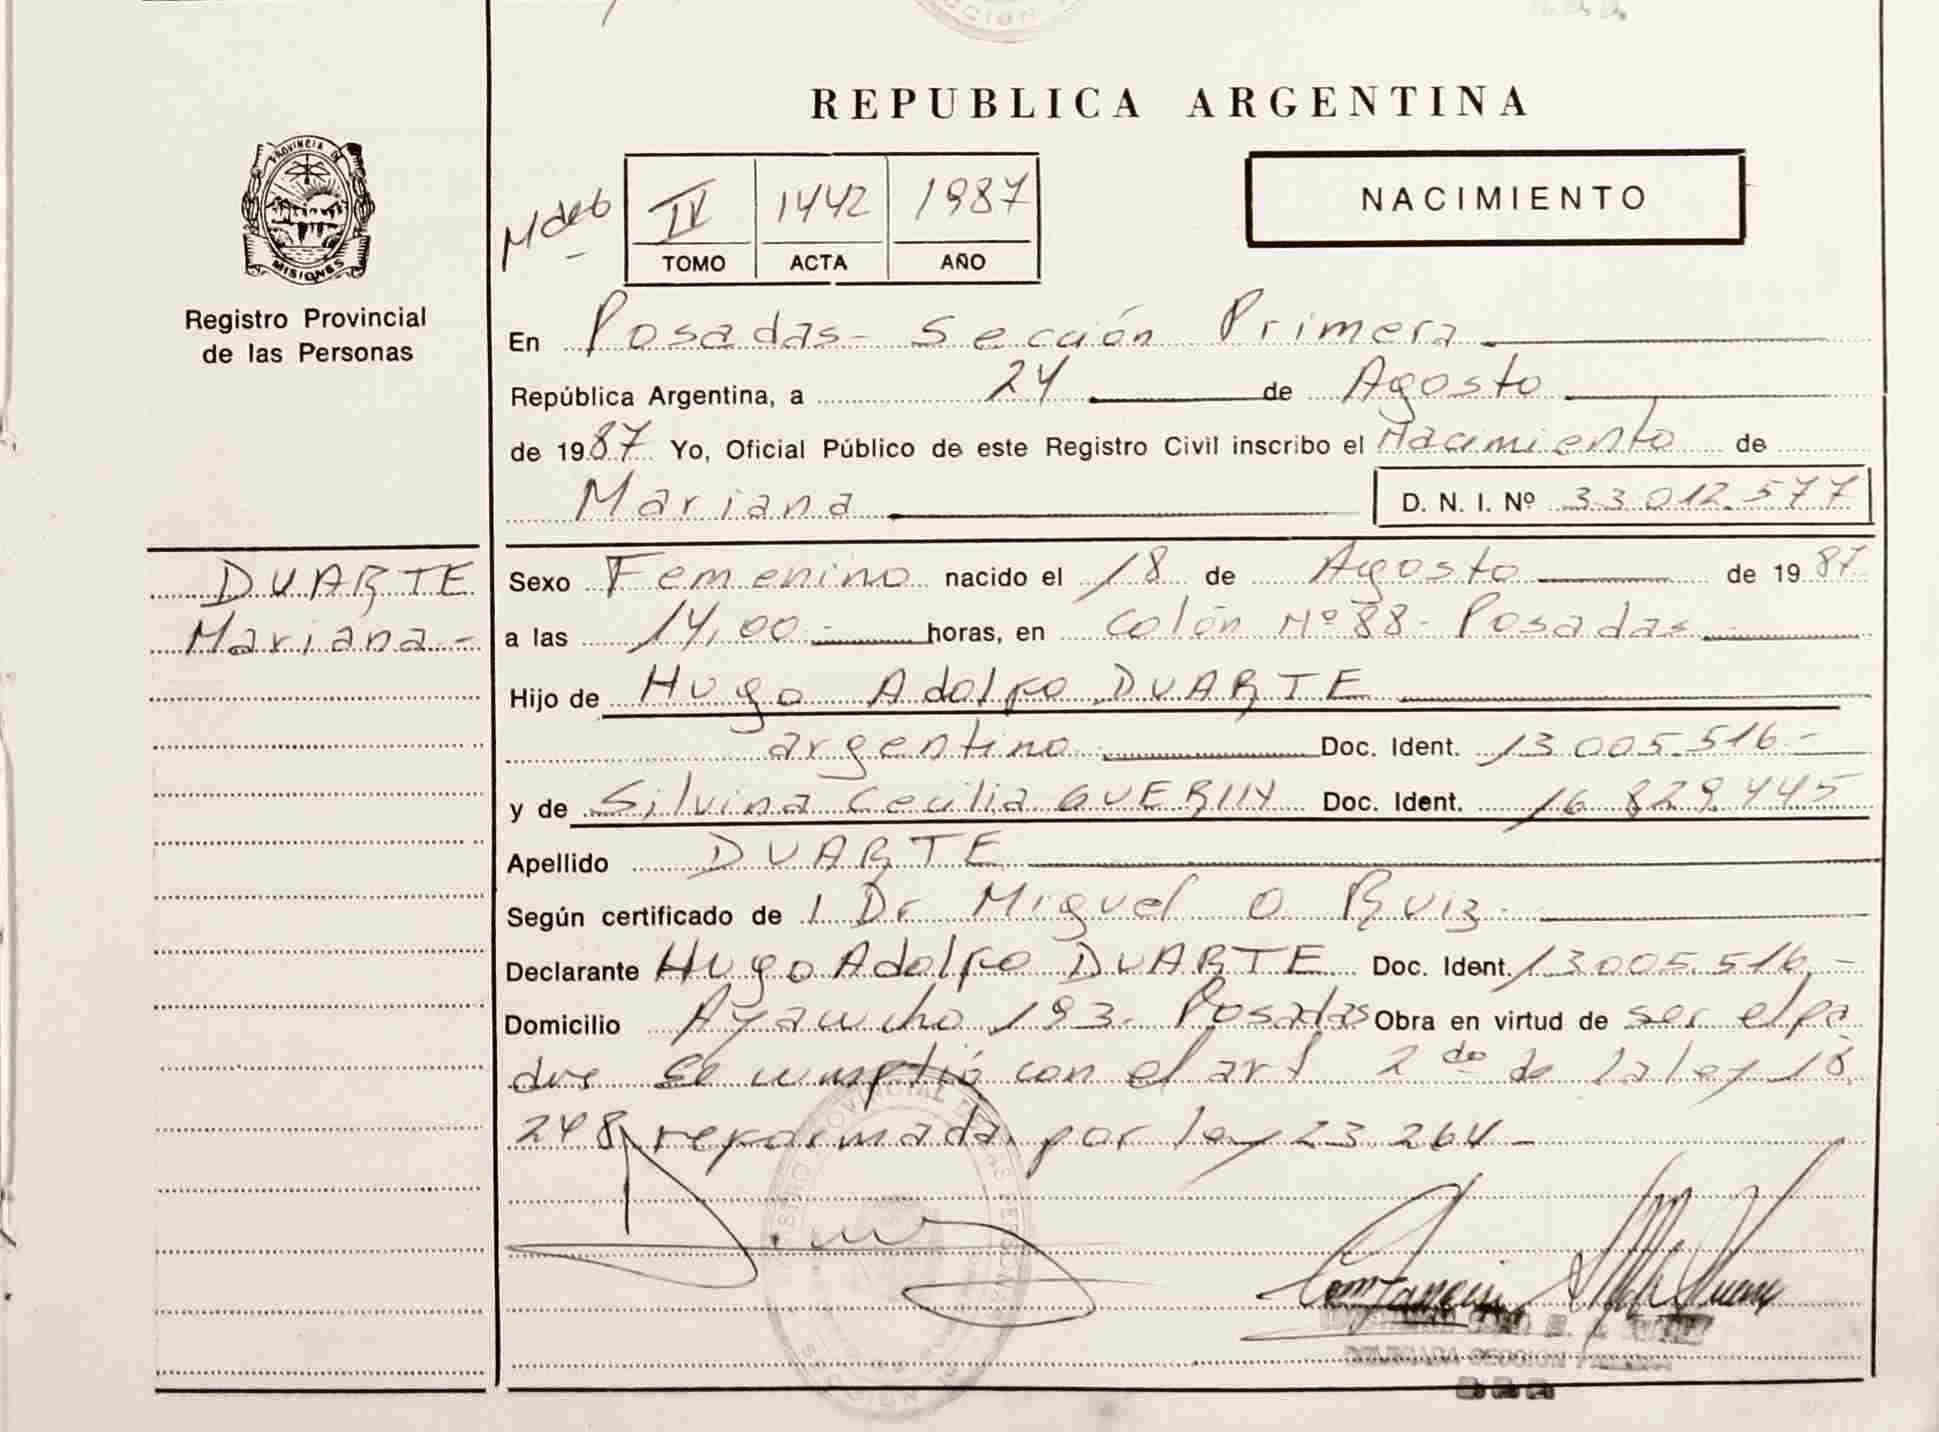 CCION
REPUBLICA ARGENTINA
PROVINCIA DE
MISIONES
Registro Provincial
de las Personas
IV 1442 1987
TOMO ACTA AÑO
NACIMIENTO
En Posadas- Sección Primera
República Argentina, a 24 de Agosto
de 1987 Yo, Oficial Público de este Registro Civil inscribo el Nacimiento de
Mariana D. N. I. Nº 33.012.577
DUARTE
Mariana.-
Sexo Femenino nacido el 18 de Agosto de 1987
a las 14,00.- horas, en Colón Nº 88- Posadas
Hijo de Hugo Adolfo DUARTE
argentino Doc. Ident. 13.005.516.-
y de Silvina Cecilia GUERINY Doc. Ident. 16.829.445
Apellido DUARTE
Según certificado de l Dr Miguel O Ruiz.
Declarante Hugo Adolfo DUARTE Doc. Ident. 13.005.516.-
Domicilio Ayacucho 193- Posadas Obra en virtud de ser el pa
dre Se cumplió con el art 2do de la ley 18.
248 reformada por ley 23.264-